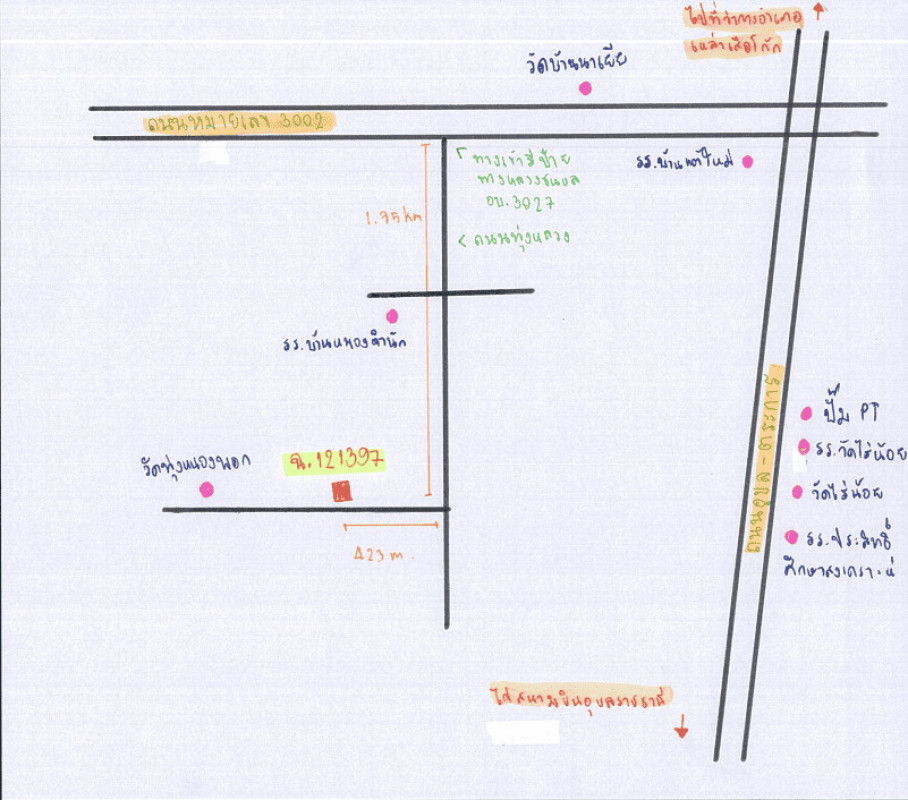 ไปที่ว่าการอำเภอ
เหล่าเสือโก้ก
วัดบ้านนาเยีย
ถนนหมายเลข 3002
ทางเข้ามีป้าย
ทางหลวงชนบท
อบ.3027
รร.บ้านแก้ใหม่
1.95 km
< ถนนทุ่งหลวง
รร.บ้านหนองคำนัก
ปั๊ม PT
รร.วัดไร่น้อย
วัดไร่น้อย
รร.ประสิทธิ์
ศึกษาสงเคราะห์
ถนนอุบล-ตระการ
วัดทุ่งหนองพอก
ฉ.121397
423 m.
ไปสนามบินอุบลราชธานี